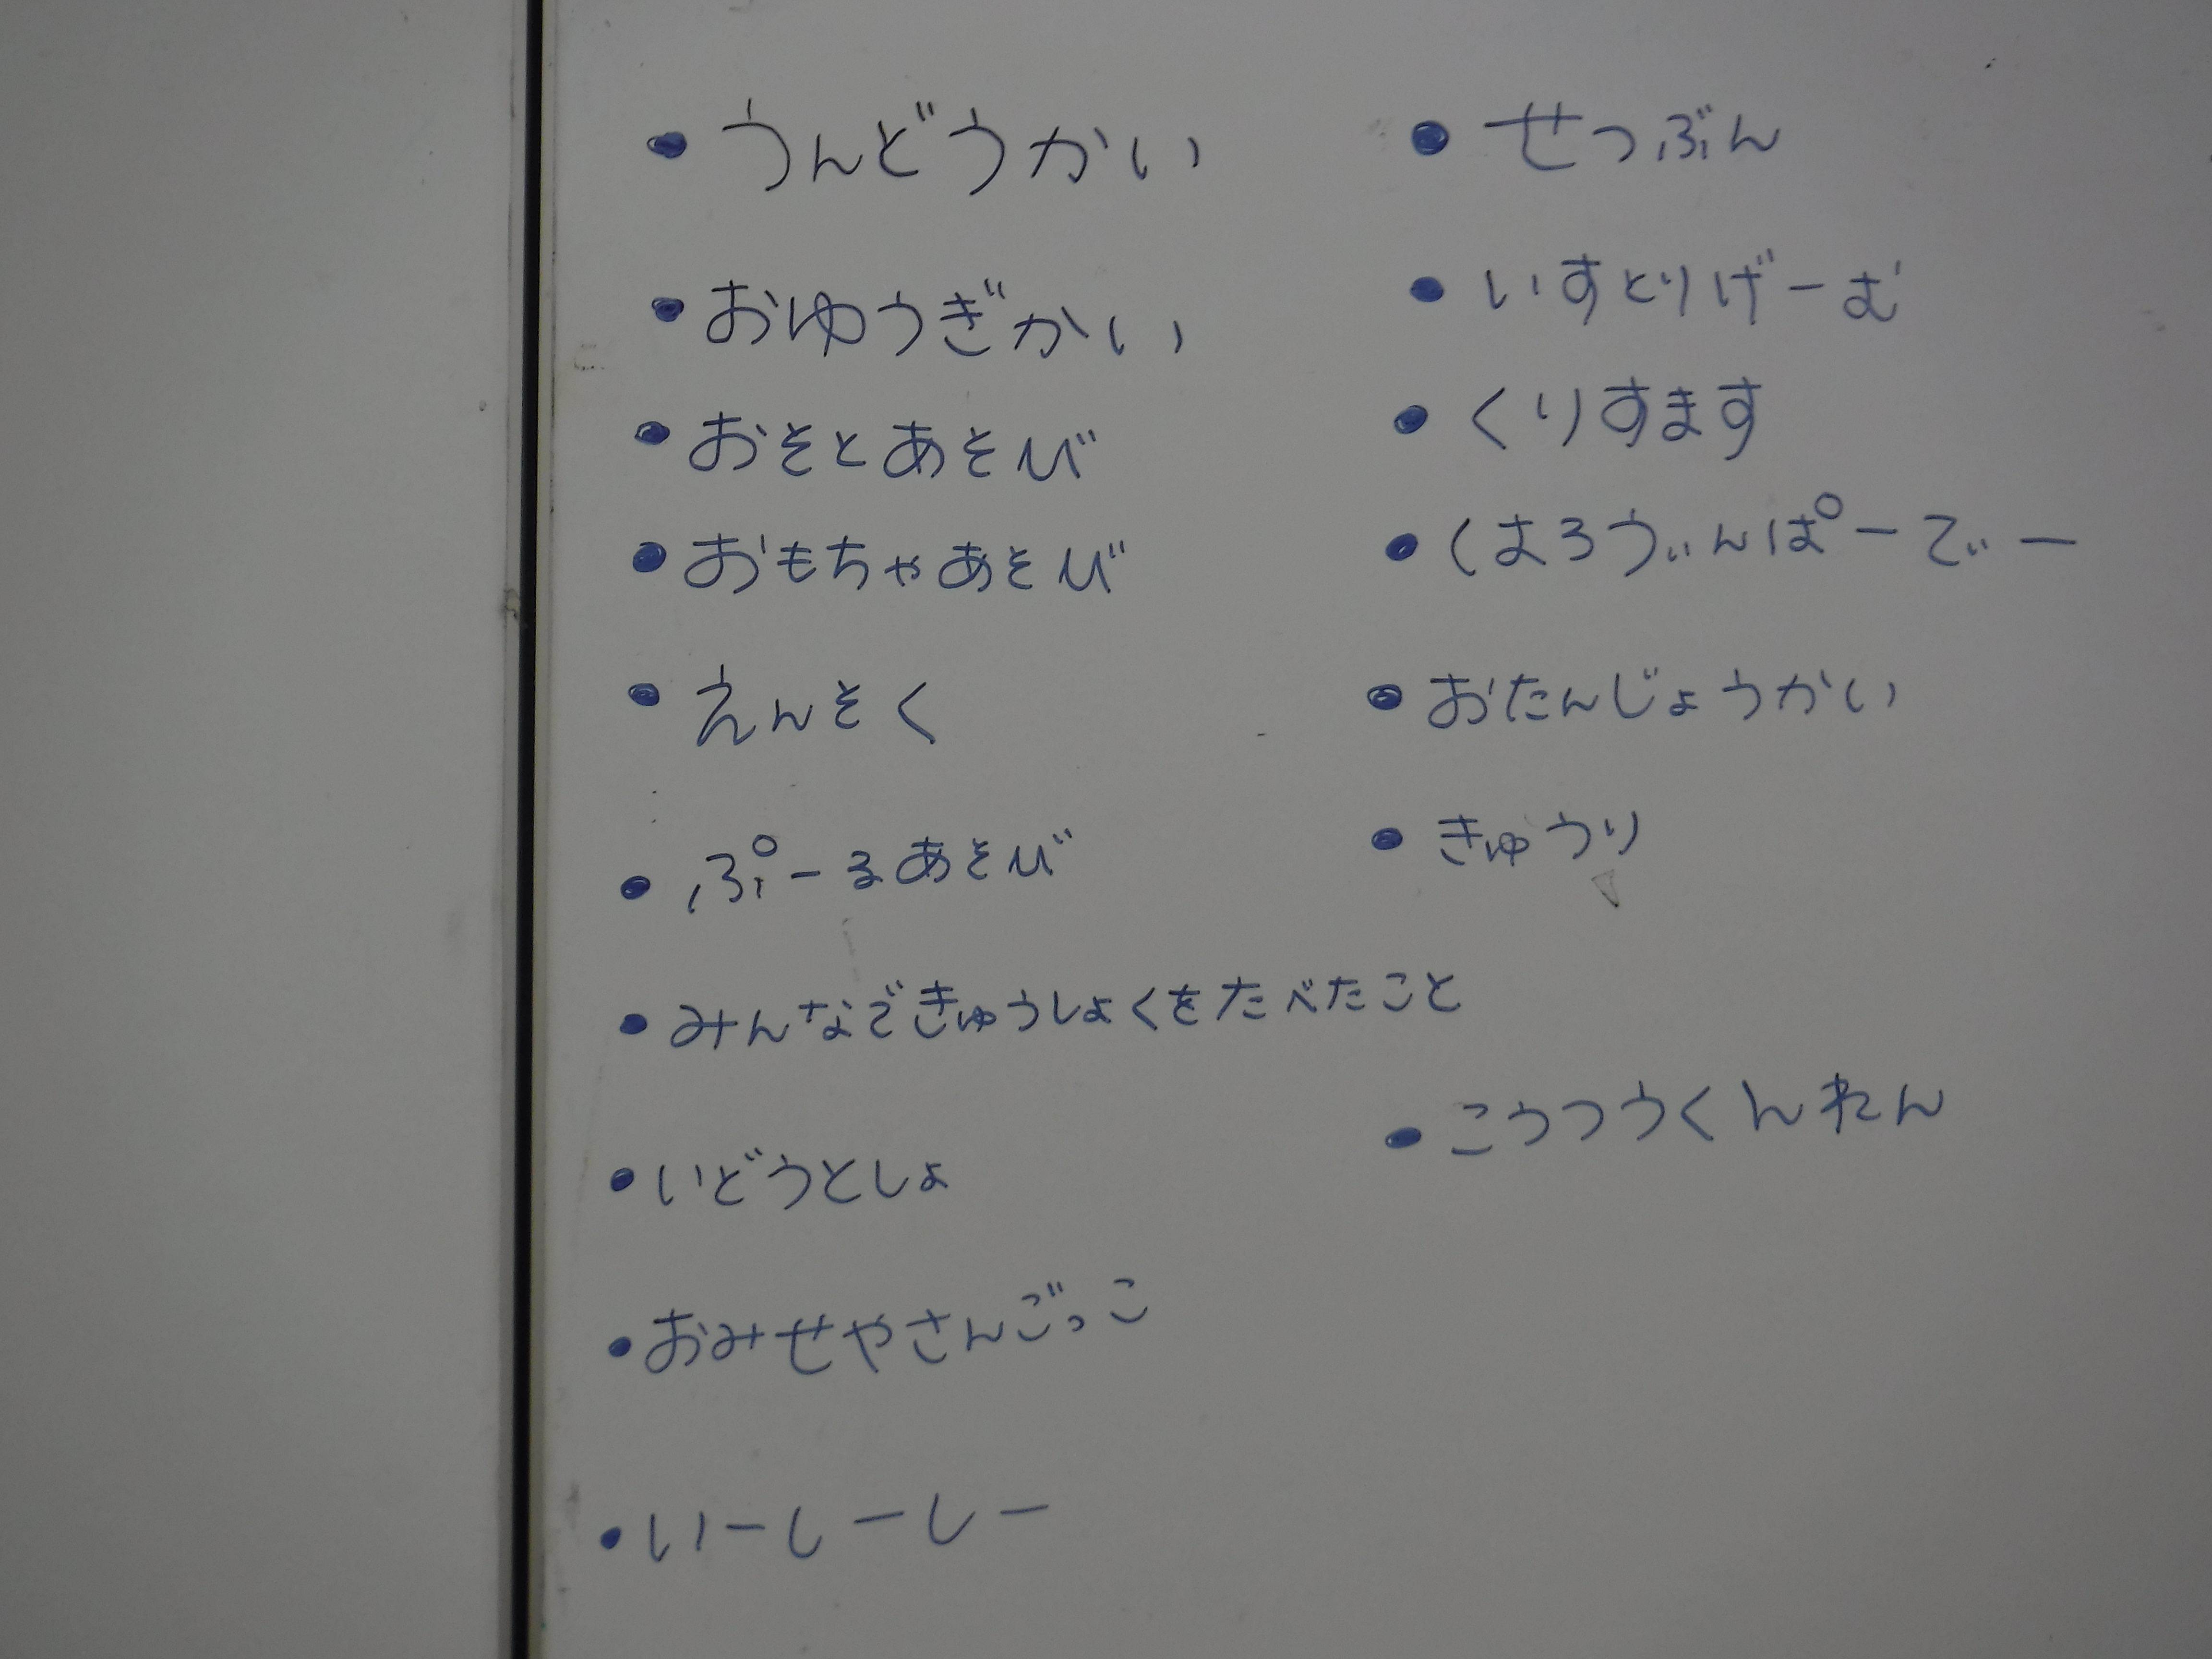 ・うんどうかい
・おゆうぎかい
・おそとあそび
・おもちゃあそび
・えんそく
・ぷーるあそび
・みんなできゅうしょくをたべたこと
・いどうとしょ
・おみせやさんごっこ
・いーしーしー
・せつぶん
・いすとりげーむ
・くりすます
・はろうぃんぱーてぃー
・おたんじょうかい
・きゅうり
・こうつうくんれん